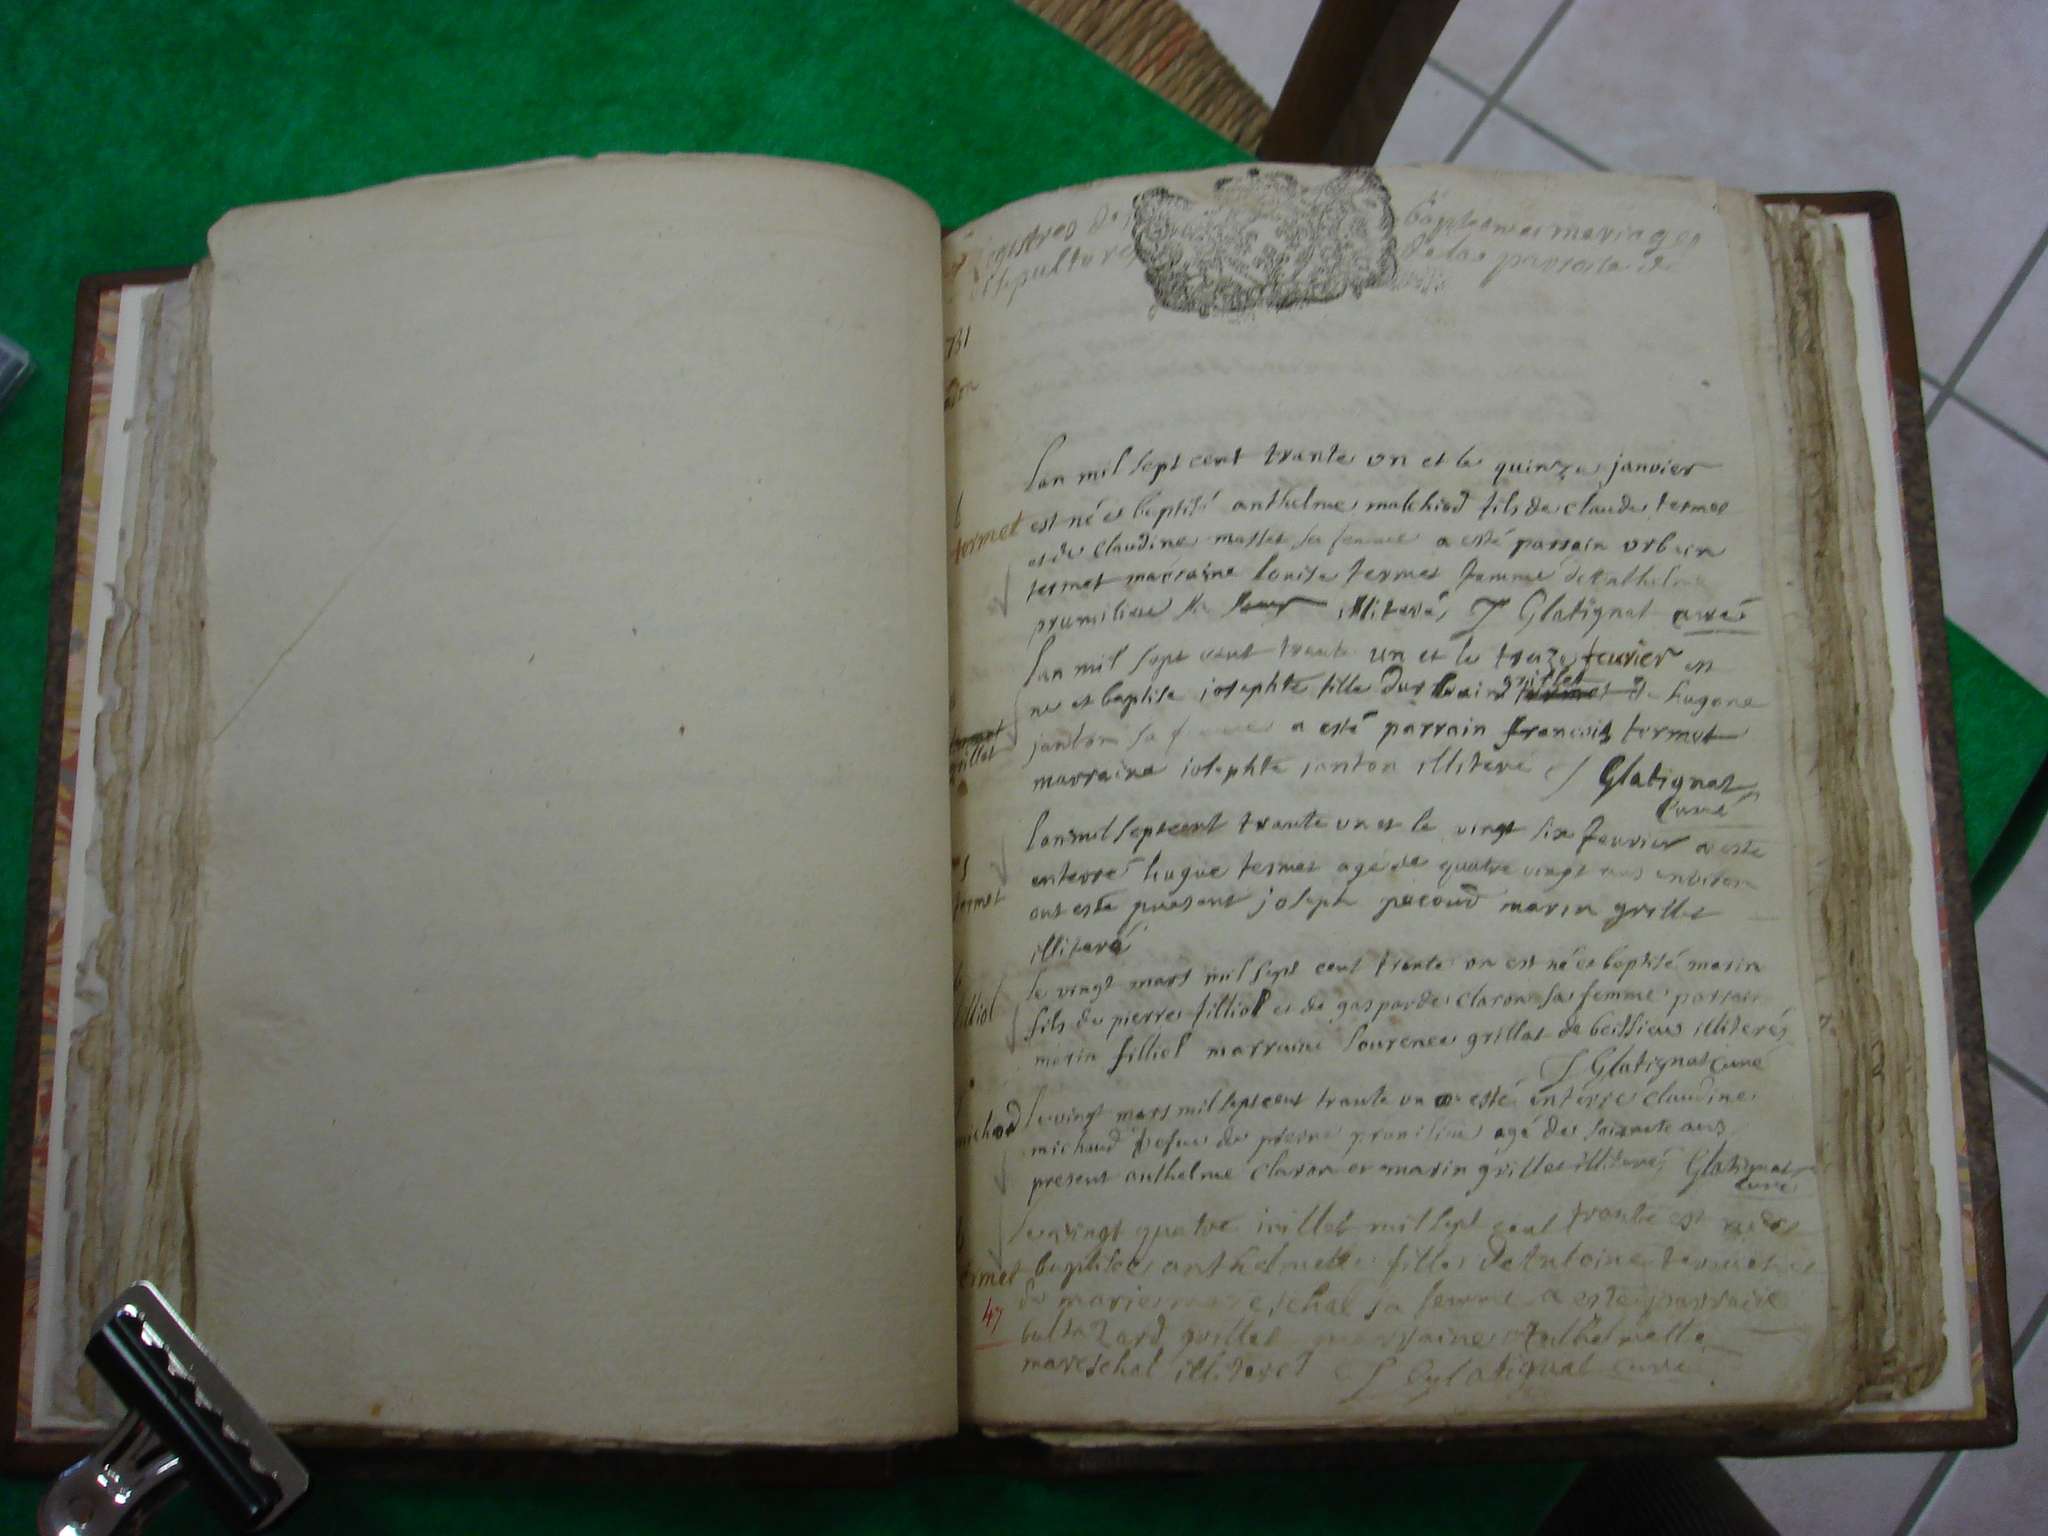 Registres de baptemes mariages
et sepultures de la parroisse de
731
b
termet
Lan mil sept cent trante un et le quinze janvier
est né et baptisé anthelme malchiod fils de claude termet
et de claudine massat sa femme a esté parrain urbain
termet marraine louise termet femme de anthelme
prumilieu illiterés J Glatignat curé
termet
grillet
Lan mil sept cent trante un et le treze feurier est
ne et baptise josephte fille durbain grillet et de hugone
janton sa femme a esté parrain francois termet
marraine josephte janton illiteré J Glatignat
Curé
s
termet
Lan mil sept cent trante un et le vingt six feurier a este
enterré hugue termet agé de quatre vingt ans environ
ont esté present joseph pacoud marin grillet
illiteré
b
filliol
le vingt mars mil sept cent trante un est né et baptisé marin
fils de pierre filliol et de gasparde claron sa femme parrain
marin filliol marraine lourence grillat de boissieu illiterés
J Glatignat Curé
michod
le vingt mars mil sept cent trante un a esté enterré claudine
michaud de pierre prumilieu agé de soixante ans
present anthelme claron et marin grillet illiterés Glatignat
curé
b
termet
47
le vingt quatre juillet mil sept cent trante est
baptisée anthelmette fille de Antoine termet et
de marie mareschal sa femme a este parrain
baltazard grillet marraine Anthelmette
mareschal illiteret J Glatignat curé